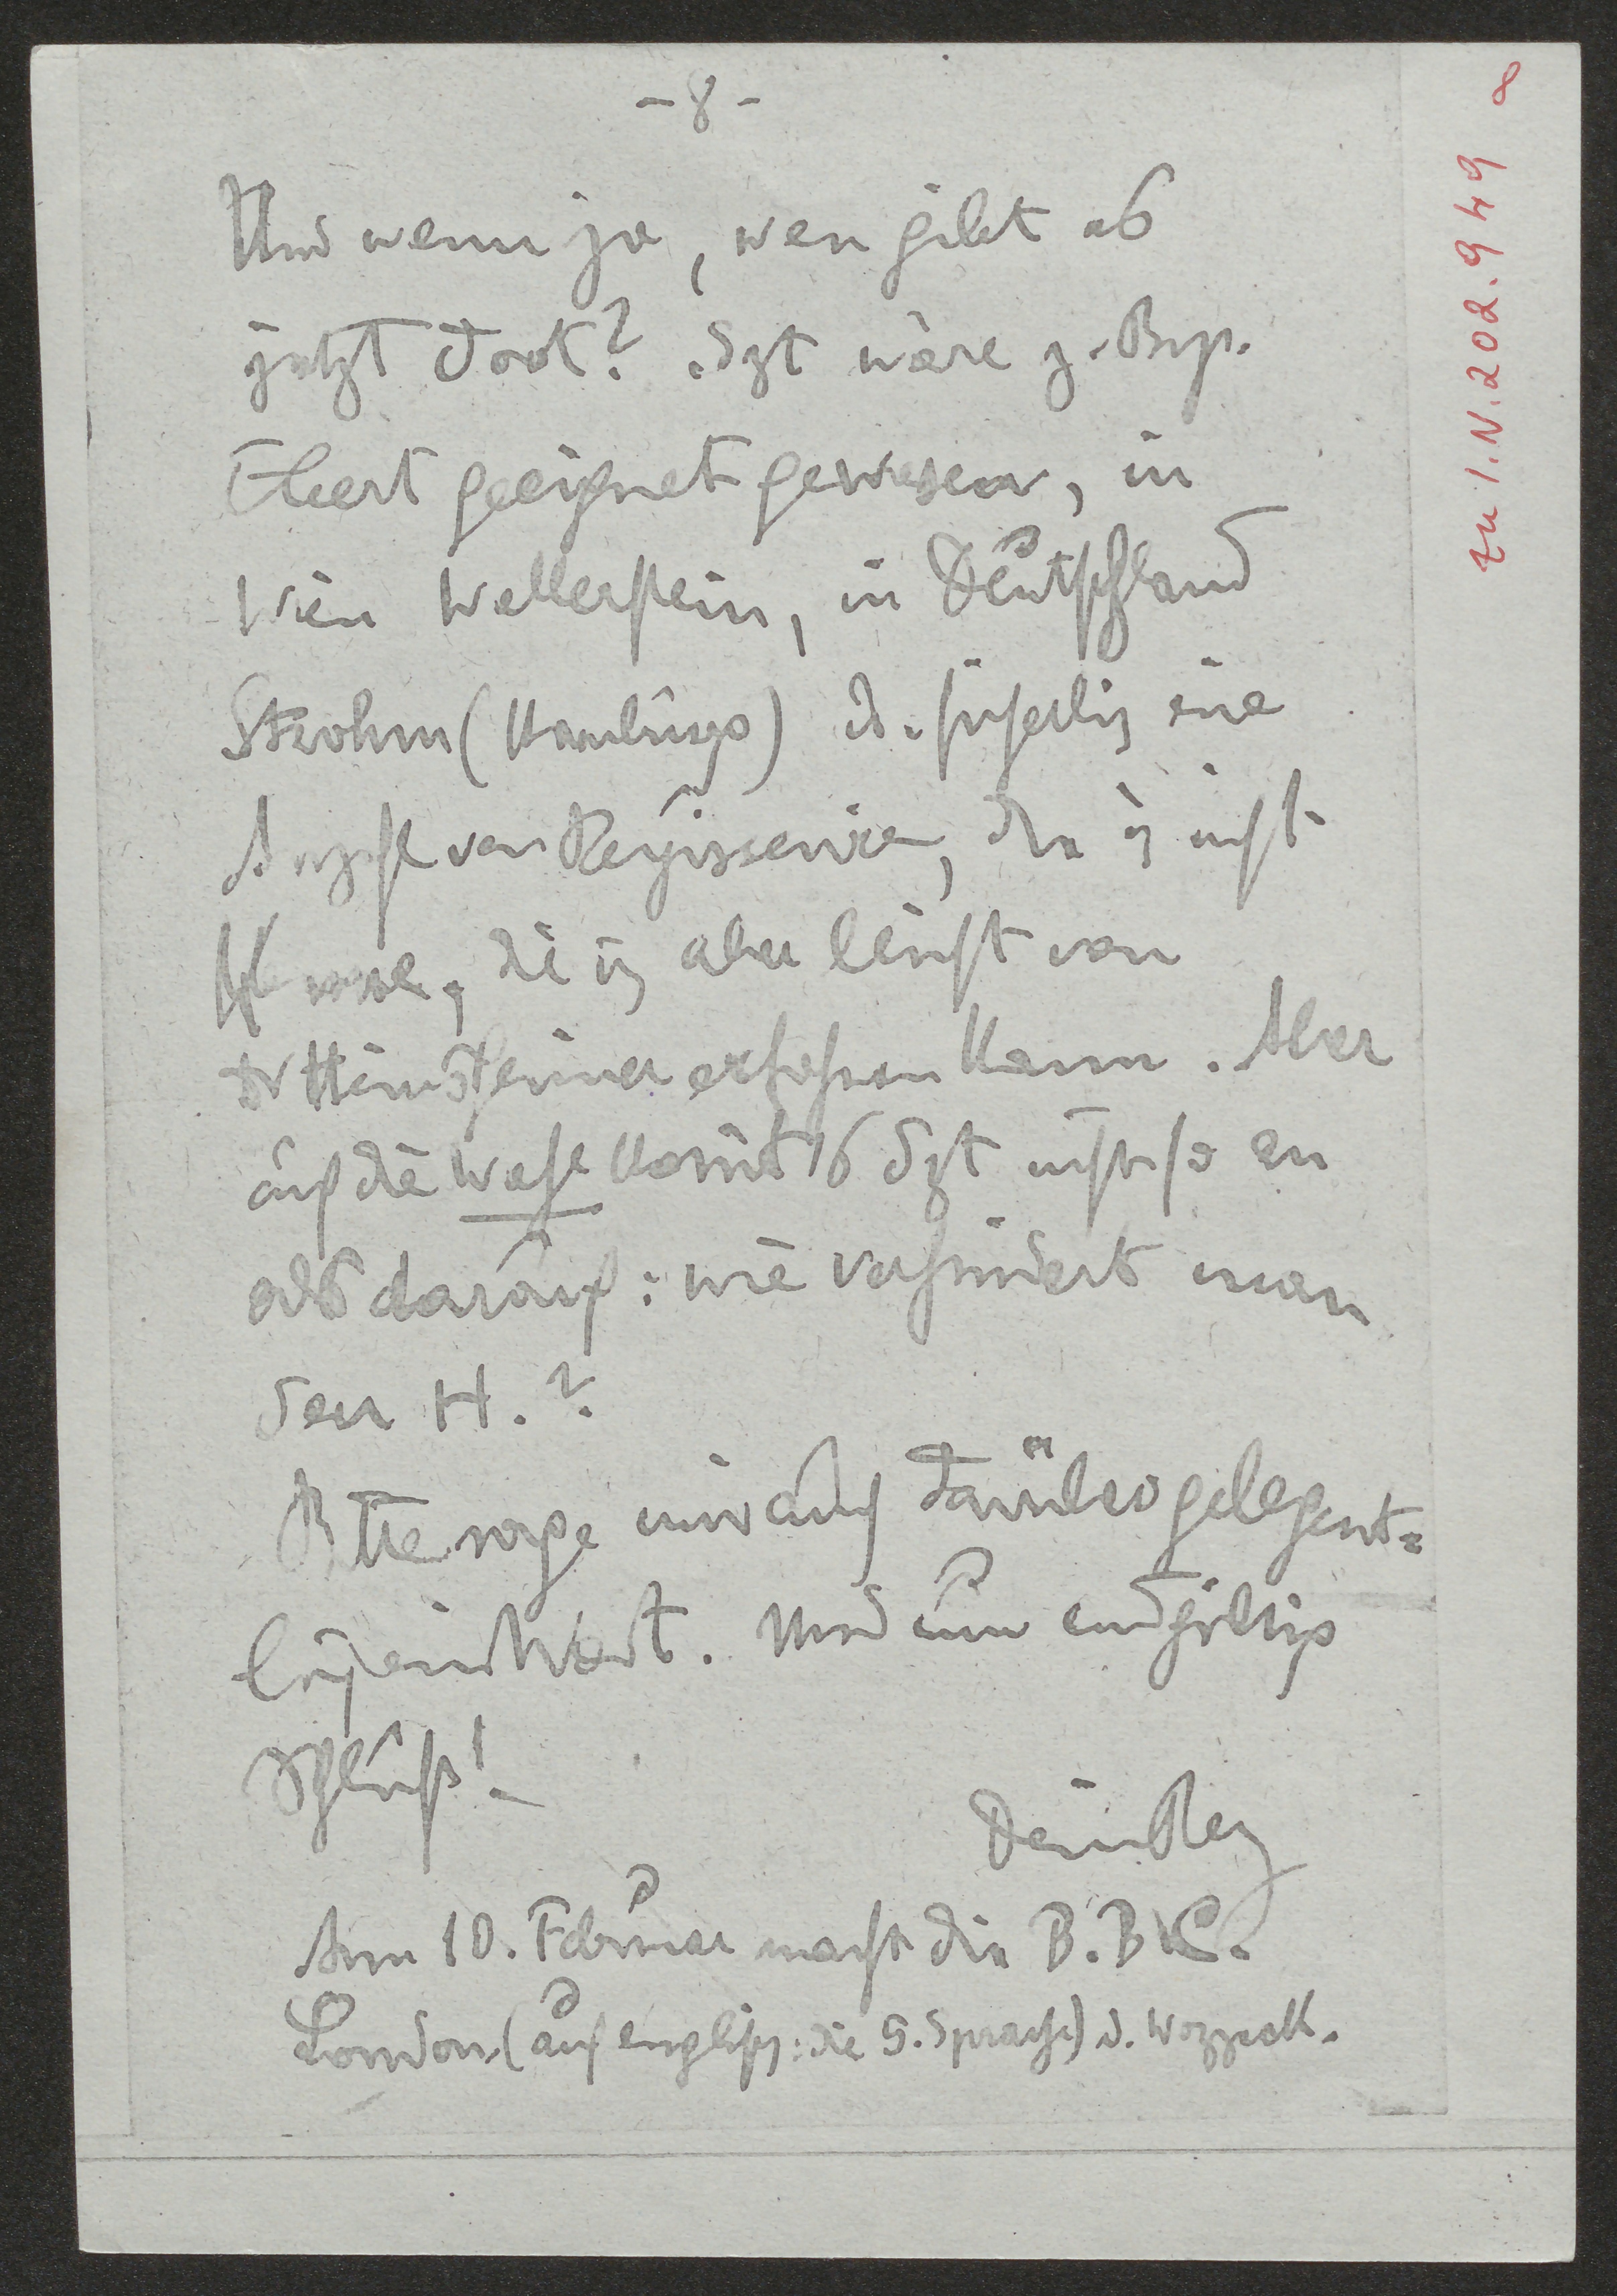 - 8 -
Und wenn ja, wen gibt es
jetzt dort? Dzt wäre z. Bsp.
Ebert geeignet gewesen, in
Wien Wallerstein, in Deutschland
Strohm (Hamburg) u. sicherlich eine
Anzahl von Regisseuren, die ich nicht
kenne, die ich aber leicht von
Dr Heinsheimer erfahren kann. Aber
auf die Wahl kommt es dzt nicht so an
als darauf: wie verhindert man
den H.?
Bitte sage mir auch darüber gelegent=
lich ein Wort. Und nun endgiltig
Schluß!
Dein
Am 10. Februar macht die B.B.C.
London (auf englisch: die 5. Sprache) d. Wozzeck.
zu I.N. 202.949 8